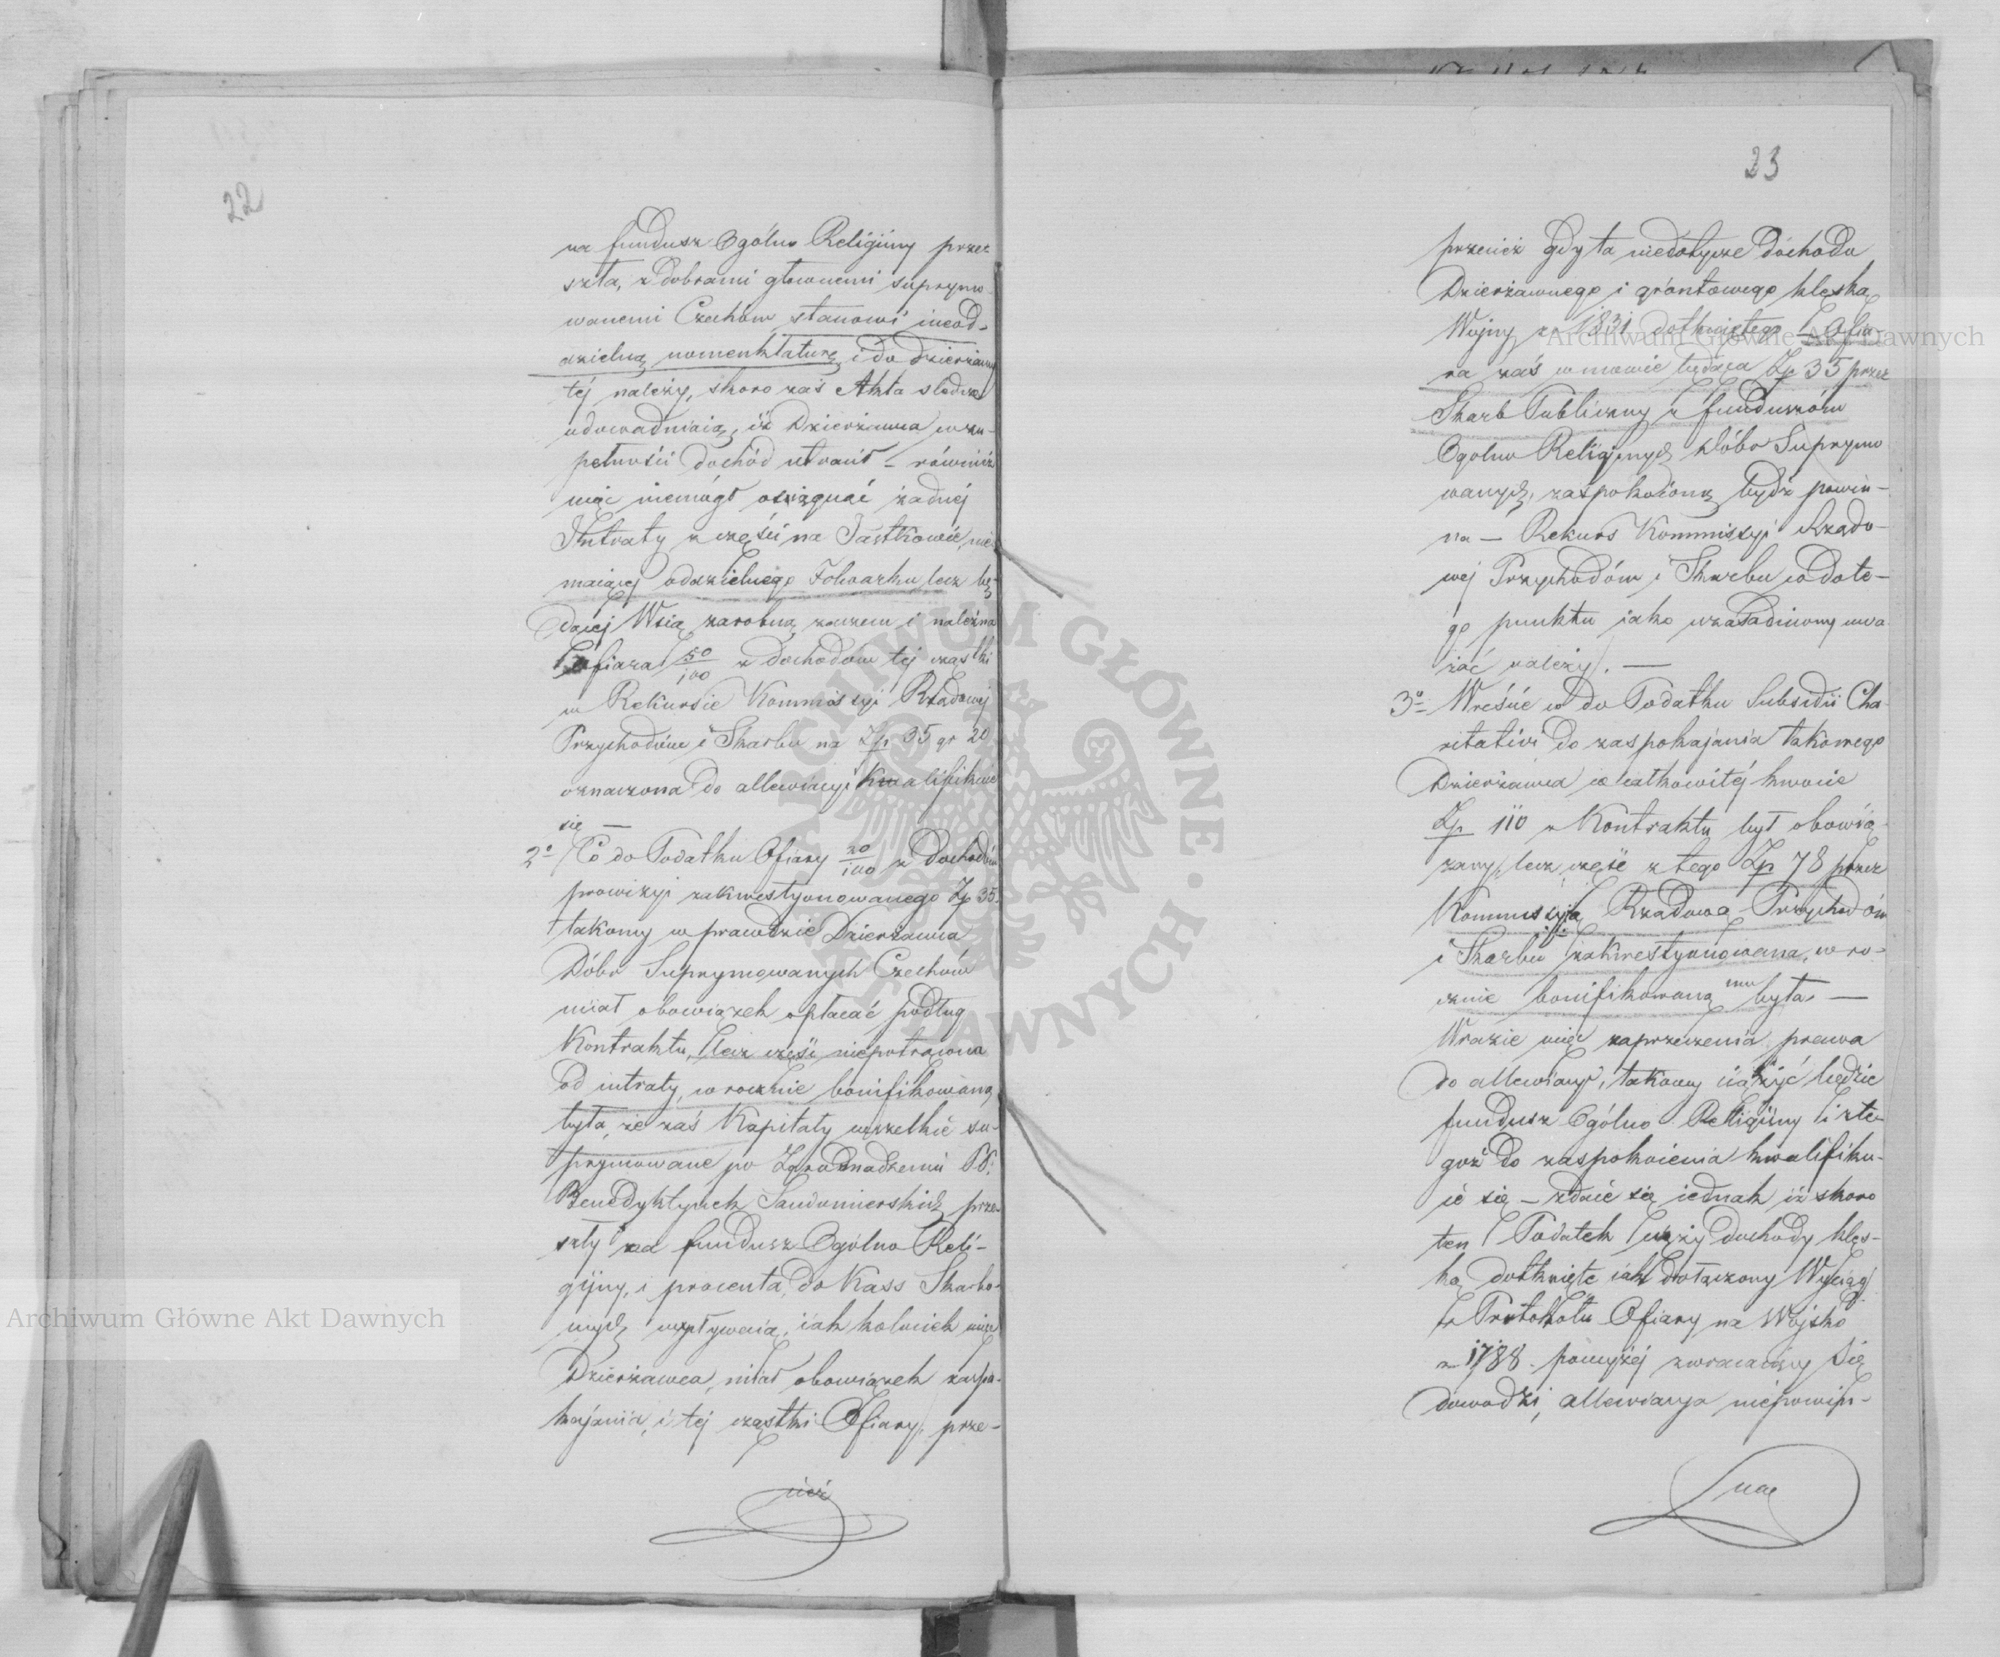 22
na fundusz Ogólno Religijny prze-
szła, z dobrami głównemi suprymo-
wanemi Czechów stanowi nieod-
dzielną nomenklaturę i do dzierżawy
téj należy, skoro zaś Akta śledcze
udowadniaią, iż Dzierżawca w zu-
pełności dochód utracił – również
więc niemógł osiągnąć żadnéj
Intraty z części na Jastkowie, nie
maiącéj oddzielnego Folwarku lecz bę-
dącéj Wsią zarobną, zaczem i należna
Ofiara 50/100 z dochodów téj cząstki
w Rekursie Kommissyi Rządowéj
Przychodów i Skarbu na Złp 35 gr 20
oznaczona do allewiacyi kwalifikuie
się —
2o Co do Podatku Ofiary 20/100 z dochodów
prowizyi zakwestyonowanego Złp 35.
takowy wprawdzie Dzierżawca
Dóbr Suprymowanych Czechów
miał obowiązek opłacać podług
Kontraktu, lecz części niepotrącona
od intraty, w rocznie bonifikowaną
była, że zaś Kapitały wszelkie su-
prymowane po Zgromadzeniu PP.
Benedyktynek Sandomierskich prze-
szły na fundusz Ogólno Reli-
gijny, i procenta do Kass Skarbo-
wych wpływaią, iakkolwiek więc
Dzierżawca, miał obowiązek zaspo-
kajania, i téj cząstki Ofiary, prze-
cież
23
przecież gdy ta niedotycze dochodu
Dzierżawnego i gruntowego klęską
Wojny z r 1831 dotkniętego Ofia-
ra zaś w mowie będąca Złp 35 przez
Skarb Publiczny z funduszów
Ogólno Religijnych z dóbr Suprymo
wanych, zaspokoioną bydź powin-
na — Rekurs Kommissyi Rządo-
wéj Przychodów i Skarbu co do te-
go punktu iako uzasadniony uwa
żać należy. —
3o Wreście co do Podatku Subsidii Cha-
ritativi do zaspokajania takowego
Dzierżawca w całkowitéj kwocie
Złp 110 z Kontraktu był obowią-
zany, lecz część z tego Złp 78 przez
Kommissyią Rządową Przychodów
i Skarbu zakwestyonowana, w ro-
cznie bonifikowaną mu była. —
W razie więc zaprzeczenia prawa
do allewiacyi, takowy ciążyć będzie
fundusz Ogólno Religijny i z te-
goż do zaspokoienia kwalifiku-
ie się — zdaie się iednak iż skoro
ten Podatek ciąży dochody klęs-
ką dotknięte iak dołączony Wyciąg
z Protokółu Ofiary na Wojsko
z 1788. powyżéj zwracaiący się
dowodzi, allewiacya niepowin-
na
Archiwum Główne Akt Dawnych
Archiwum Główne Akt Dawnych
ARCHIWUM GŁÓWNE AKT DAWNYCH